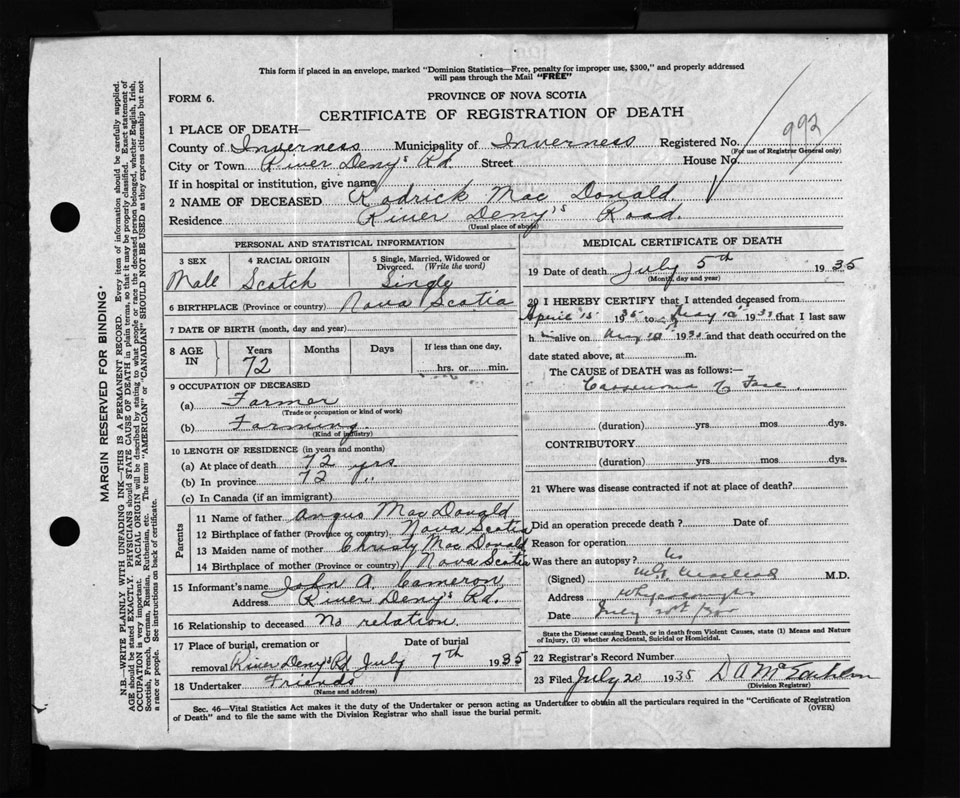 This form if placed in an envelope, marked "Dominion Statistics—Free, penalty for improper use, $300," and properly addressed
will pass through the Mail "FREE"
FORM 6.
PROVINCE OF NOVA SCOTIA
CERTIFICATE OF REGISTRATION OF DEATH
992
1 PLACE OF DEATH—
County of Inverness Municipality of Inverness Registered No.
(For use of Registrar General only)
City or Town River Deny's Rd. Street House No.
If in hospital or institution, give name
2 NAME OF DECEASED Rodrick Mac Donald
Residence River Deny's Road.
(Usual place of abode)
PERSONAL AND STATISTICAL INFORMATION
3 SEX 4 RACIAL ORIGIN 5 Single, Married, Widowed or
Divorced. (Write the word)
Male Scotch Single
6 BIRTHPLACE (Province or country) Nova Scotia
7 DATE OF BIRTH (month, day and year)
8 AGE IN Years Months Days If less than one day,
72 hrs. or min.
9 OCCUPATION OF DECEASED
(a) Farmer
(Trade or occupation or kind of work)
(b) Farming
(Kind of industry)
10 LENGTH OF RESIDENCE (in years and months)
(a) At place of death 72 yrs.
(b) In province 72 "
(c) In Canada (if an immigrant)
Parents
11 Name of father Angus Mac Donald
12 Birthplace of father (Province or country) Nova Scotia
13 Maiden name of mother Christy Mac Donald
14 Birthplace of mother (Province or country) Nova Scotia
15 Informant's name John A. Cameron
Address River Deny's Rd.
16 Relationship to deceased No relation
17 Place of burial, cremation or Date of burial
removal River Deny's Rd July 7th 1935
18 Undertaker Friends
(Name and address)
MEDICAL CERTIFICATE OF DEATH
19 Date of death July 5th 1935
(Month, day and year)
20 I HEREBY CERTIFY that I attended deceased from
April 15 1935 to May 10 1935 that I last saw
h alive on May 10 1935 and that death occurred on the
date stated above, at m.
The CAUSE of DEATH was as follows:—
of Face
(duration) yrs. mos. dys.
CONTRIBUTORY
(duration) yrs. mos. dys.
21 Where was disease contracted if not at place of death?
Did an operation precede death? Date of
Reason for operation
Was there an autopsy? No
(Signed) M.D.
Address
Date July
State the Disease causing Death, or in death from Violent Causes, state (1) Means and Nature
of Injury, (2) whether Accidental, Suicidal or Homicidal.
22 Registrar's Record Number
23 Filed July 20 1935
(Division Registrar)
Sec. 46—Vital Statistics Act makes it the duty of the Undertaker or person acting as Undertaker to obtain all the particulars required in the "Certificate of Registration
of Death" and to file the same with the Division Registrar who shall issue the burial permit. (OVER)
MARGIN RESERVED FOR BINDING
N.B.—WRITE PLAINLY WITH UNFADING INK—THIS IS A PERMANENT RECORD. Every item of information should be carefully supplied.
AGE should be stated EXACTLY. PHYSICIANS should STATE CAUSE OF DEATH in plain terms, so that it may be properly classified. Exact statement of
OCCUPATION is very important. RACIAL ORIGIN will be described by stating to what people or race the deceased person belonged, whether English, Irish,
Scottish, French, German, Russian, Ruthenian, etc. The terms "AMERICAN" or "CANADIAN" SHOULD NOT BE USED as they express citizenship but not
a race or people. See instructions on back of certificate.